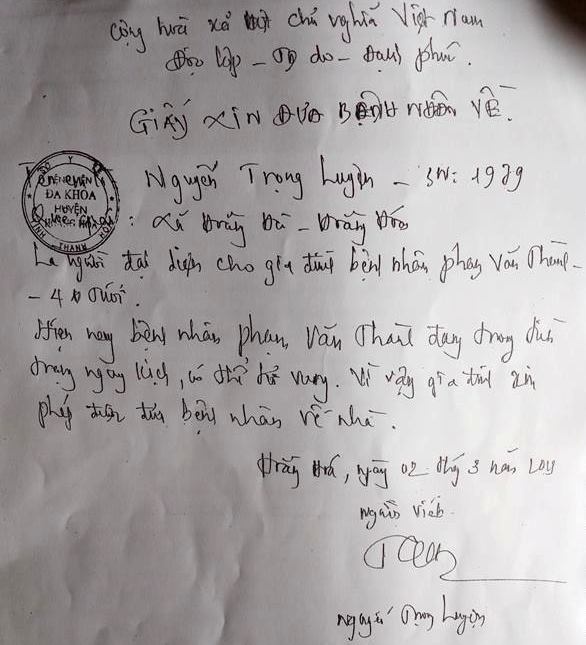 Cộng hoà xã hội chủ nghĩa Việt Nam
Độc lập - Tự do - Hạnh phúc.
GIẤY XIN ĐƯA BỆNH NHÂN VỀ.
Nguyễn Trọng Luyện - SN: 1979
: Xã Hoằng - Hoằng Hóa
SỞ Y
BỆNH VIỆN
ĐA KHOA
HUYỆN
HOẰNG HÓA
TỈNH THANH HÓA
Là người đại diện cho gia đình bệnh nhân phạm Văn Thành -
- 4 tuổi.
Hiện nay bệnh nhân phạm Văn Thành đang trong tình
trạng nguy kịch, có thể tử vong. Vì vậy gia đình xin
phép được đưa bệnh nhân về nhà.
Hoằng Hoá, ngày 02 tháng 3 năm
người viết
Nguyễn Trọng Luyện